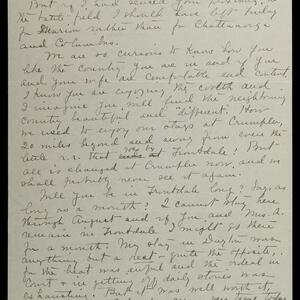 But if I had
the battle field I should have left
for Marion rather than for Chattanooga
and Columbus.
We are so curious to know how you
like the country you are in and if you
and your wife are comfortable and content.
I know you are enjoying the coolth and
I imagine you will find the neighboring
country beautiful and "different." How
we used to enjoy our stays at Crumpler,
20 miles beyond and away from even the
little r.r. that by Troutdale! But
all is changed at Crumpler now, and we
shall probably never see it again.
Will you be in Troutdale long? Say, as
long as a month? I cannot stay here
through August and if you and Mrs. A.
remain in Troutdale I might go there
for a month. My stay in Dayton was
anything but a rest - quite the opposite,
for the heat was awful and the ordeal in
court & in getting off daily stories was
exhausting. But it was well worth it,